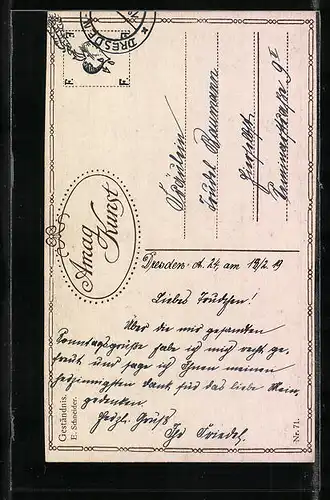 DRESDEN
F. F.
F.
Fräulein
Trudel Baumann
hierselbst
9 II
Amag
Kunst
Dresden - A. 24, am 18/2. 19
Liebes Trudchen!
Über die mir gesandten
Sonntagsgrüße habe ich mich recht ge-
freut und sage ich Ihnen meinen
herzinnigsten Dank für das liebe Mein-
gedenken.
Herzl. Gruß
Ihr Friedel.
Geständnis.
E. Schneider.
Nr. 71.